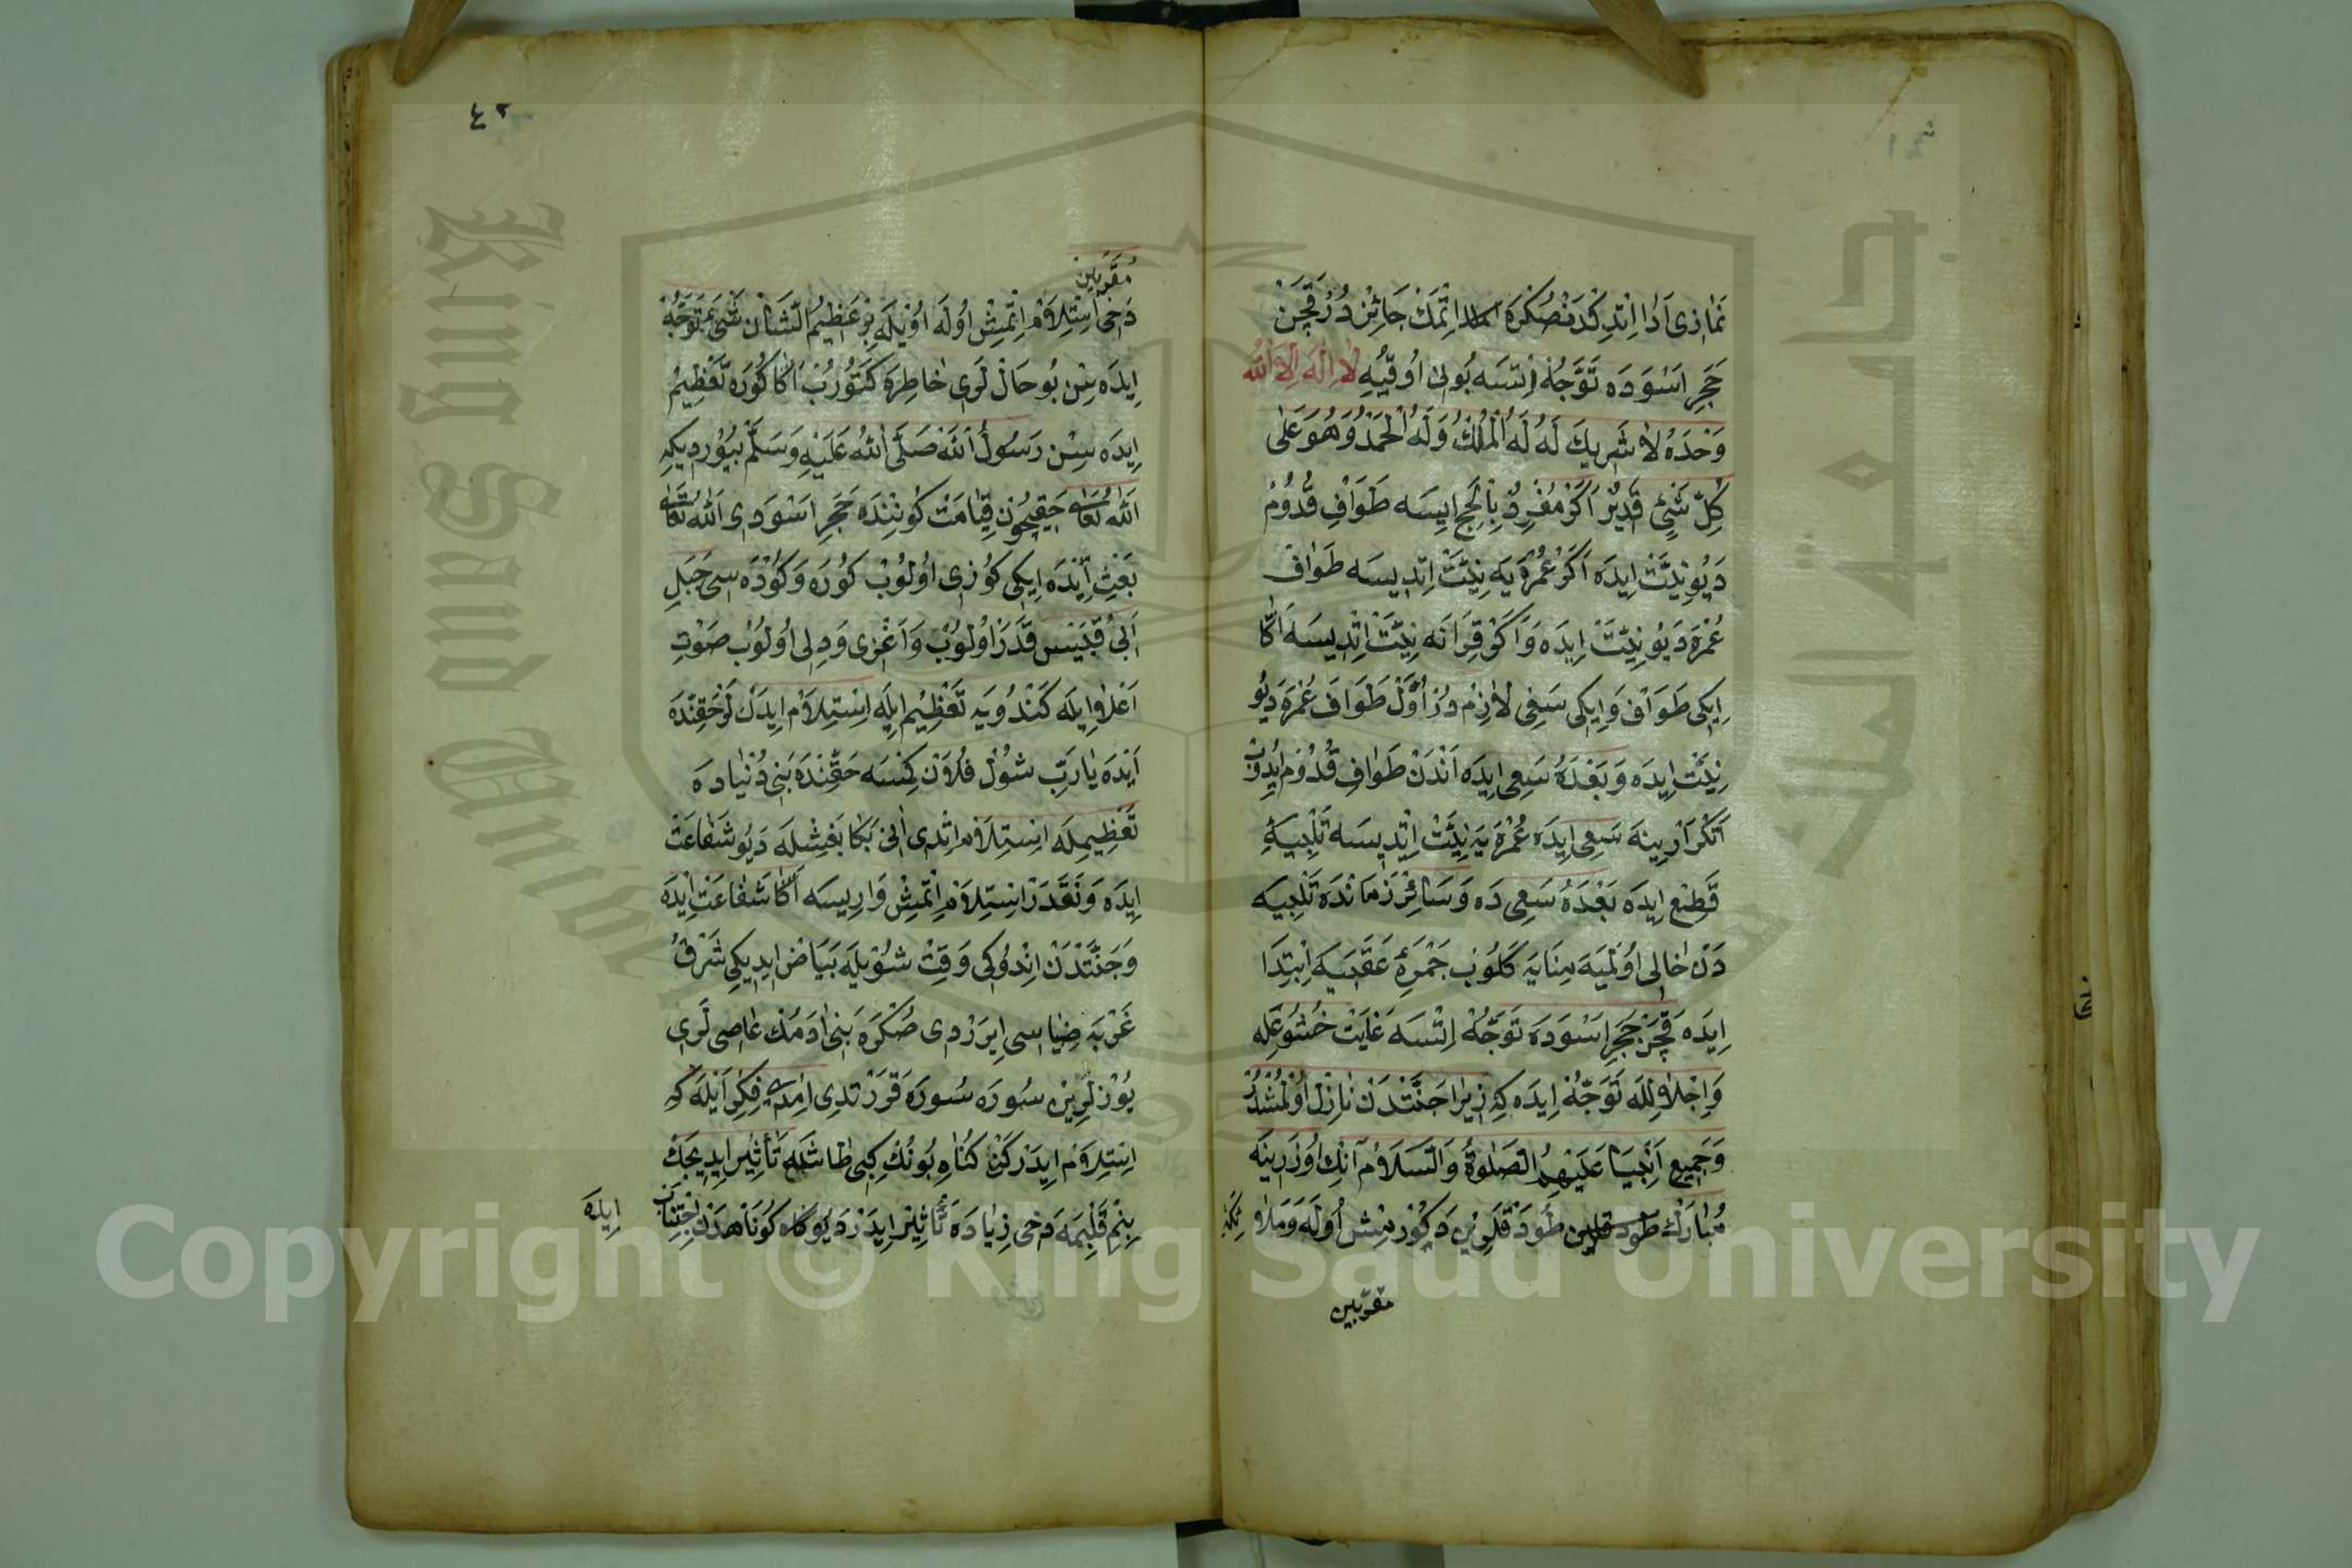 نَمازى اَدا اِتْدِكْدَنْ صُكْرَه اِتْمَكْ جَائِزْدُرْ قَچَنْ
حَجَرِ اَسْوَدَه تَوَجُّهْ اِتسَه بُونى اُوقُيَه لا اِلٰهَ اِلاَّ اللّٰهُ
وَحْدَهُ لا شَرِيكَ لَهُ لَهُ الْمُلْكُ وَلَهُ الْحَمْدُ وَهُوَ عَلى
كُلِّ شَىْءٍ قَدِيْرٌ اَكَرْ مُفْرِدْ بِالْحَجِّ ايسَه طَوَافِ قُدُومْ
دَيُو نِيَّتْ ايدَه اَكَرْ عُمْرَه يَه نِيَّتْ اِتْديسَه طَوَافْ
عُمْرَه دَيُو نِيَّتْ اِيدَه وَ اَكَرْ قِرَانَه نِيَّتْ اِتْدِيسَه اَكَا
اِيكى طَوَافْ وَ اِيكى سَعِى لازِمْ دُرْ اَوَّلْ طَوَافِ عُمْرَه دَيُو
نِيَّتْ اِيدَه وَ بَعْدَهُ سَعِى اِيدَه اَنْدَنْ طَوافِ قُدُومْ اِيدُوبْ
تَكْرَارْ ينَه سَعِى اِيدَه عُمْرَه يَه نِيَّتْ اِتْديسَه تَلْبِيَةِ
قَطِعْ اِيدَه بَعْدَهُ سَعِى دَه وَ سَائِرْ زَمانْدَه تَلْبِيَه
دَنْ خالى اُولْمَيَه مِنَايَه كَلُوبْ جَمْرَۀِ عَقَبَيَه اِبْتِدَا
اِيدَه قَچَنْ حَجَرِ اَسْوَدَه تَوَجُّهْ اِتْسَه غايَتْ خُشُوعِلَه
وَ اِجْلالِلَه تَوَجُّهْ اِيدَه كِه زِيرا جَنَّتْدَنْ نازِلْ اُولْمُشْدُرْ
وَجَمِيعِ اَنْبِيَا عَلَيْهِمُ الصَّلٰوةُ وَالسَّلَامُ اَنِكْ اُوزَرِينَه
مُبارَكْ طُودَقْلَرِيْنِ دَكُورْمِشْ اُولَه وَ مَلاۤئِكَۀِ
مقرّبين
٤٢
مُقَرَّبِينْ
دَخى اِسْتِلامْ اِتْمِشْ اُولَه اُويْلَه بِرْ عَظِيمُ الشَّانْ شَىئَه تَوَجُّهْ
اِيدَه سِنْ بُو حَالْ لَرى خاطِرَه كَتُورُبْ اَكَا كُورَه تَعْظِيمْ
اِيدَه سِنْ رَسُولُ اللّٰهْ صَلَّى اللّٰهُ عَلَيْهِ وَسَلَّمْ بُيُورديكِه
اَللّٰه تَعَالٰى حَقِيچُونْ قِيامَتْ كُونِنْدَه حَجَرِ اَسْوَدى اللّٰه تَعَالٰى
بَعْثِ اَيْدَه اِيكى كُوزى اُولُوبْ كُورَه وَ كَوْدَه سى جَبَلِ
اَبى قُبَيْس قَدَرْ اُولُوبْ وَ اَغْزى وَ دِلى اُولُوبْ صَوْتِ
اَعْلا اِيلَه كَنْدُويَه تَعْظِيمْ اِيلَه اِسْتِلَامْ اِيدَنْ لَرْ حَقِنْدَه
اَيْدَه يا رَبِّ شُولْ فُلَانْ كِمْسَه حَقِّنْدَه بَنى دُنْيا دَه
تَعْظِيمِلَه اِسْتِلَامْ اِتْدى اَنى بَكا بَغِشْلَه دَيُو شَفاعَتْ
اِيدَه وَ نَقَدَرْ اِسْتِلَامْ اِتْمِشْ وَارِيسَه اَكَا شَفاعَتْ اِيْدَه
وَ جَنَّتْدَنْ اِنْدُوكى وَقِتْ شُويْلَه بَيَاضْ ايديكى شَرْقُ
غَرْبَه ضِياسى اِيرَرْدى صُكْرَه بَنى اۤدَمُكْ عاصى لَرى
يُوزلَرِيْن سُورَه سُورَه قَرَرْتدى امدى فِكِر اَيْلَه كِه
اِسْتِلَامْ اِيدَرْكَنْ كُناهِ بُونُكْ كِبى طاشَه تَأْثِيْر اِيدِيجَكْ
بِنِمْ قَلْبِمَه دَخى زِيادَه تَأْثِيْر اِيدَرْ دَيُو كُونَاهدَنْ اِجْتِنَابْ
اِيدَه